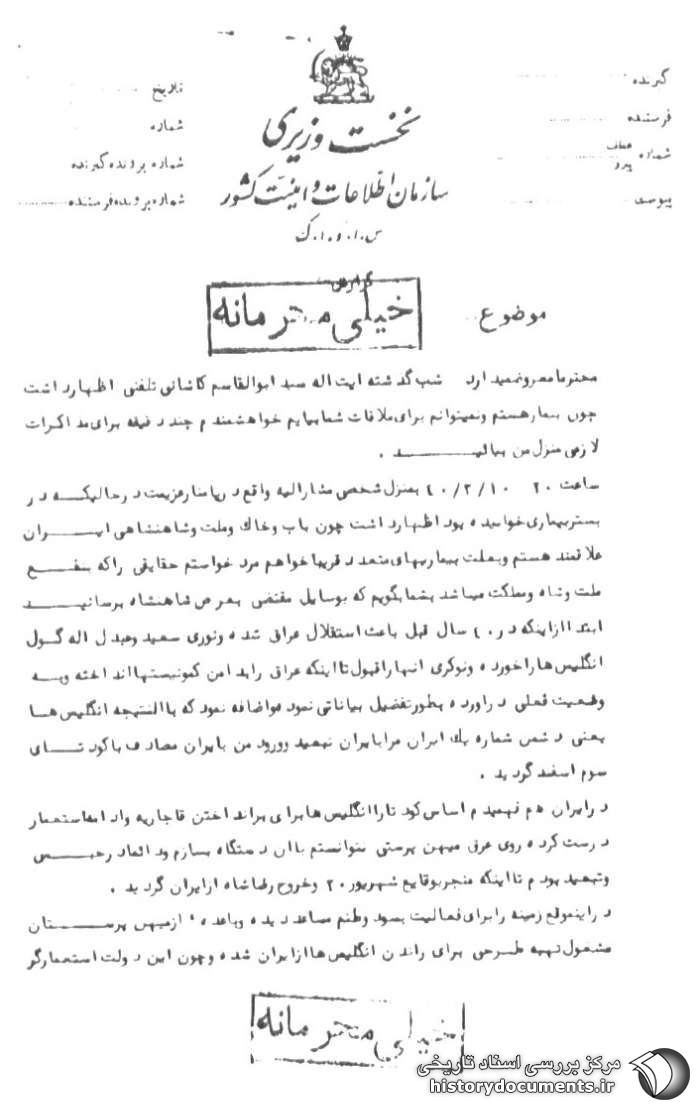 گیرنده
فرستنده
شماره عطف پیرو
پیوست
نخست وزیری
سازمان اطلاعات و امنیت کشور
س.ا.و.ا.ک
تاریخ
شماره
شماره پرونده گیرنده
شماره پرونده فرستنده
گزارش
خیلی محرمانه
موضوع
محترما معروض میدارد شب گذشته ایت اله سید ابوالقاسم کاشانی تلفنی اظهار داشت
چون بیمار هستم و نمیتوانم برای ملاقات شما بیایم خواهشمندم چند دقیقه برای مذاکرات
لازمی منزل من بیائید .
ساعت ۲۰ ۴۰/۲/۱۰ بمنزل شخص مشارالیه واقع در پامنار عزیمت در حالیکه در
بستر بیماری خوابیده بود اظهار داشت چون باب و خاک و ملت و شاهنشاهی ایران
علاقمند هستم و بعلت بیماریهای متعدد قریبا خواهم مرد خواستم حقایقی را که بنفع
ملت و شاه و مملکت میباشد بشما بگویم که بوسایل مقتضی بعرض شاهنشاه برسانید
ابتدا از اینکه در ۴۰ سال قبل باعث استقلال عراق شده و نوری سعید و عبدل اله گول
انگلیس ها را خورده و نوکری انها را قبول تا اینکه عراق را بدامن کمونیستها انداخته و به
وضعیت فعلی دراورده بطور تفضیل بیاناتی نمود و اضافه نمود که بالنتیجه انگلیس ها
یعنی دشمن شماره یک ایران مرا بایران تبعید و ورود من بایران مصادف با کودتای
سوم اسفند گردید .
در ایران هم فهمیدم اساس کودتا را انگلیس ها برای برانداختن قاجاریه و ادامه استعمار
درست کرده روی عرق میهن پرستی نتوانستم با ان دستگاه بسازم و دائما در حبس
و تبعید بودم تا اینکه منجر بوقایع شهریور ۲۰ و خروج رضا شاه از ایران گردید .
در اینموقع زمینه را برای فعالیت بسود وطنم مساعد دیده و با عده ٔ از میهن پرستان
مشغول تهیه طرحی برای راندن انگلیس ها از ایران شده و چون این دولت استعمارگر
خیلی محرمانه
مرکز بررسی اسناد تاریخی
historydocuments.ir